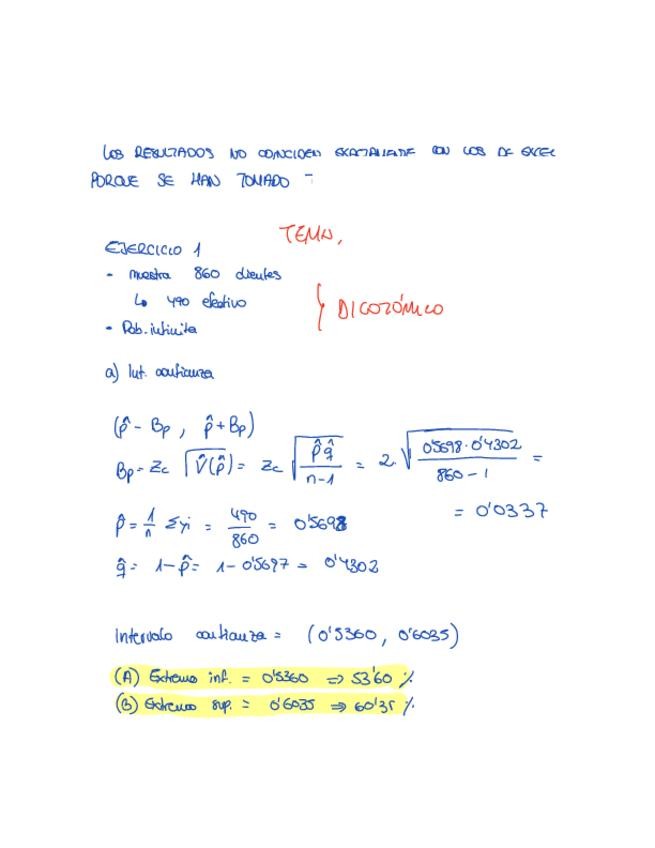 LOS RESULTADOS NO COINCIDEN EXACTAMENTE CON LOS DE EXCEL
PORQUE SE HAN TOMADO
EJERCICIO 1
- muestra 860 clientes
↳ 490 efectivo
- Pob. infinita
} DICOTÓMICO
a) Int. confianza
(p̂ - Bp , p̂ + Bp)
Bp = Zc √V̂(p̂) = Zc √(p̂ q̂ / n-1) = 2 · √(0'5698 · 0'4302 / 860 - 1) =
= 0'0337
p̂ = 1/n Σyi = 490/860 = 0'5698
q̂ = 1 - p̂ = 1 - 0'5697 = 0'4302
Intervalo confianza = (0'5360 , 0'6035)
(A) Extremo inf. = 0'5360 ⇒ 53'60 %
(B) Extremo sup. = 0'6035 ⇒ 60'35 %